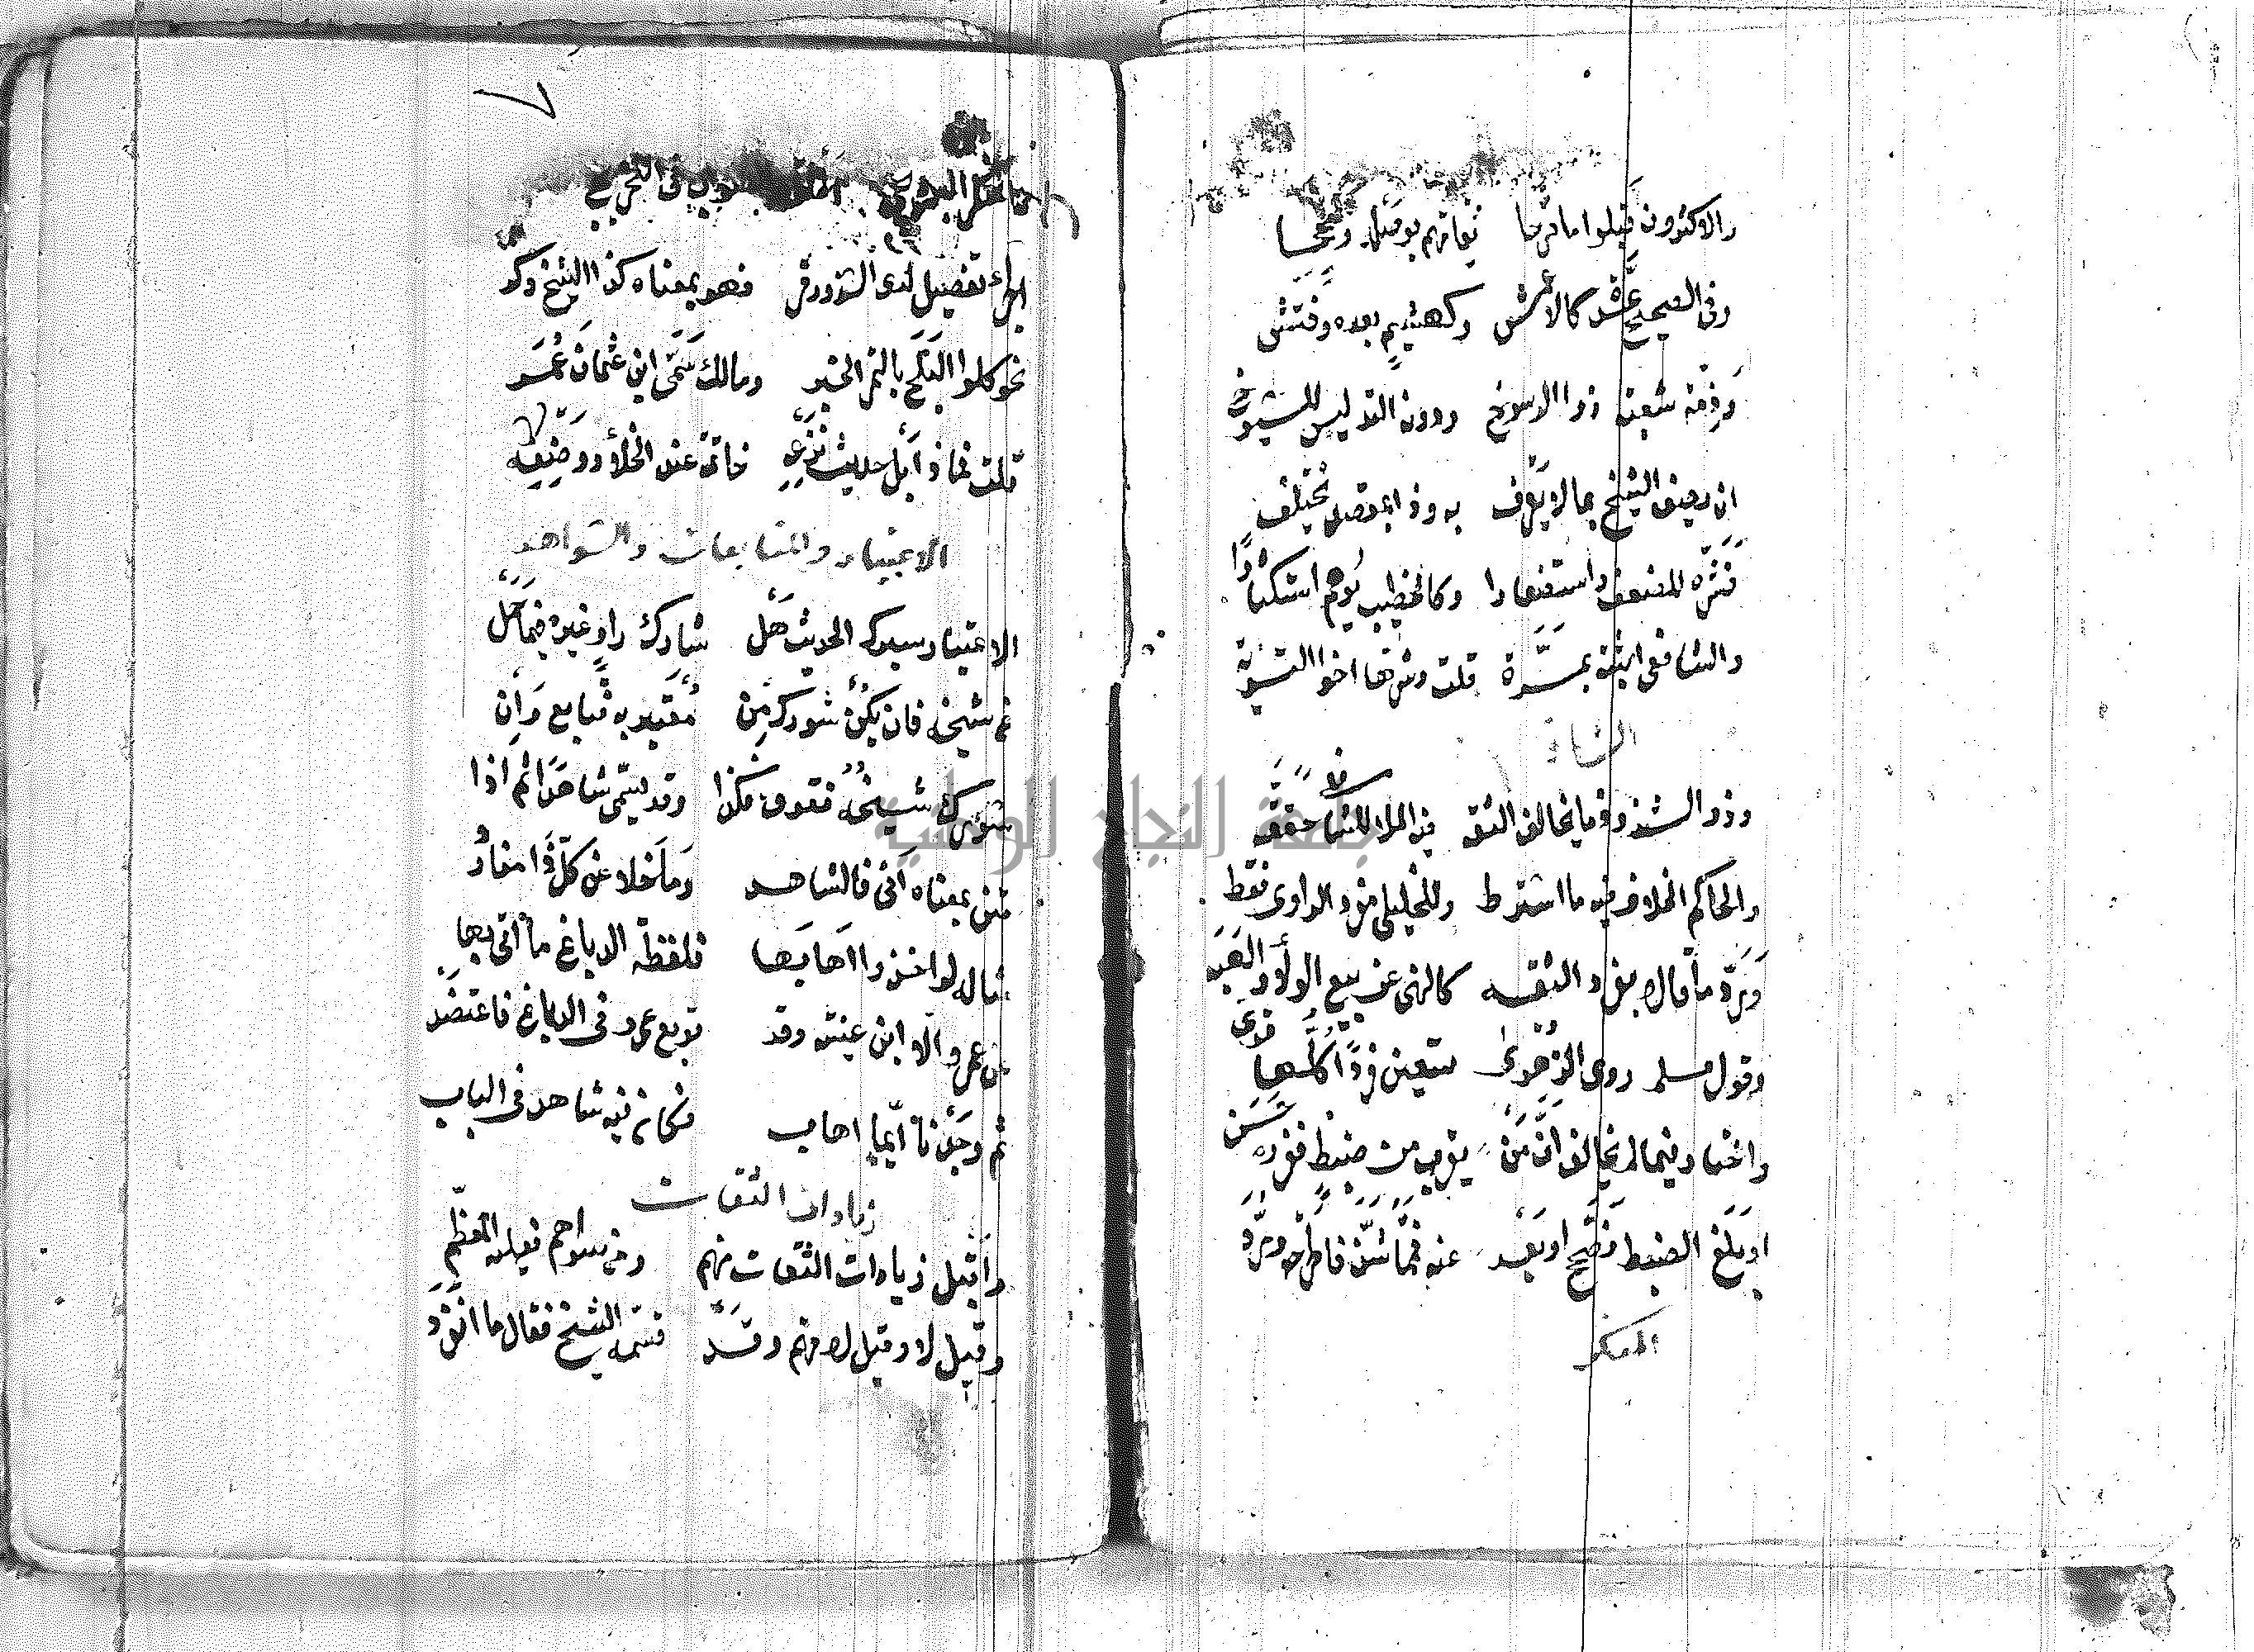 والاكثرون قبلوا ما صرحا ثقاتهم بوصله وصححا
وفي الصحيح عدة كالاعمش وكهشيم بعده وفتش
وذمه شعبة ذو الرسوخ ودونه التدليس للشيوخ
ان يصف الشيخ بما لا يعرف به وذا بمقصد يختلف
فشره للضعف واستصغارا وكالخطيب يوهم استكثارا
والشافعي اثبته بمرة قلت وشرها اخو التسوية
الشاذ
وذو الشذوذ ما يخالف الثقة فيه الملا فالشافعي حققه
والحاكم الخلاف فيه ما اشترط وللخليلي مفرد الراوي فقط
ورد ما قالا بفرد الثقه كالنهي عن بيع الولاء والهبه
وقول مسلم روى الزهري تسعين فردا كلها قوي
واختار فيما لم يخالف ان من يقرب من ضبط ففرده حسن
او بلغ الضبط فصحح او بعد عنه فمما شذ فاطرحه ورد
المنكر
والمنكر الفرد كذا البرديجي اطلق والصواب في التخريج
اجراء تفصيل لدى الشذوذ مر فهو بمعناه كذا الشيخ ذكر
نحو كلوا البلح بالتمر الخبر ومالك سمى ابن عثمان عمر
قلت فماذا بل حديث نزعه خاتمه عند الخلاء ووضعه
الاعتبار والمتابعات والشواهد
الاعتبار سبرك الحديث هل شارك راو غيره فيما حمل
عن شيخه فان يكن شورك من معتبر به فتابع وان
شورك شيخه ففوق فكذا وقد يسمى شاهدا ثم اذا
متن بمعناه اتى فالشاهد وما خلا عن كل ذا مفارد
مثاله لو اخذوا اهابها فلفظة الدباغ ما اتى بها
عن عمرو الا ابن عيينة وقد توبع عمرو في الدباغ فاعتضد
ثم وجدنا ايما اهاب فكان فيه شاهد في الباب
زيادات الثقات
واقبل زيادات الثقات منهم ومن سواهم فعليه المعظم
وقيل لا وقيل لا منهم وقد قسمه الشيخ فقال ما انفرد
جامعة النجاح الوطنية